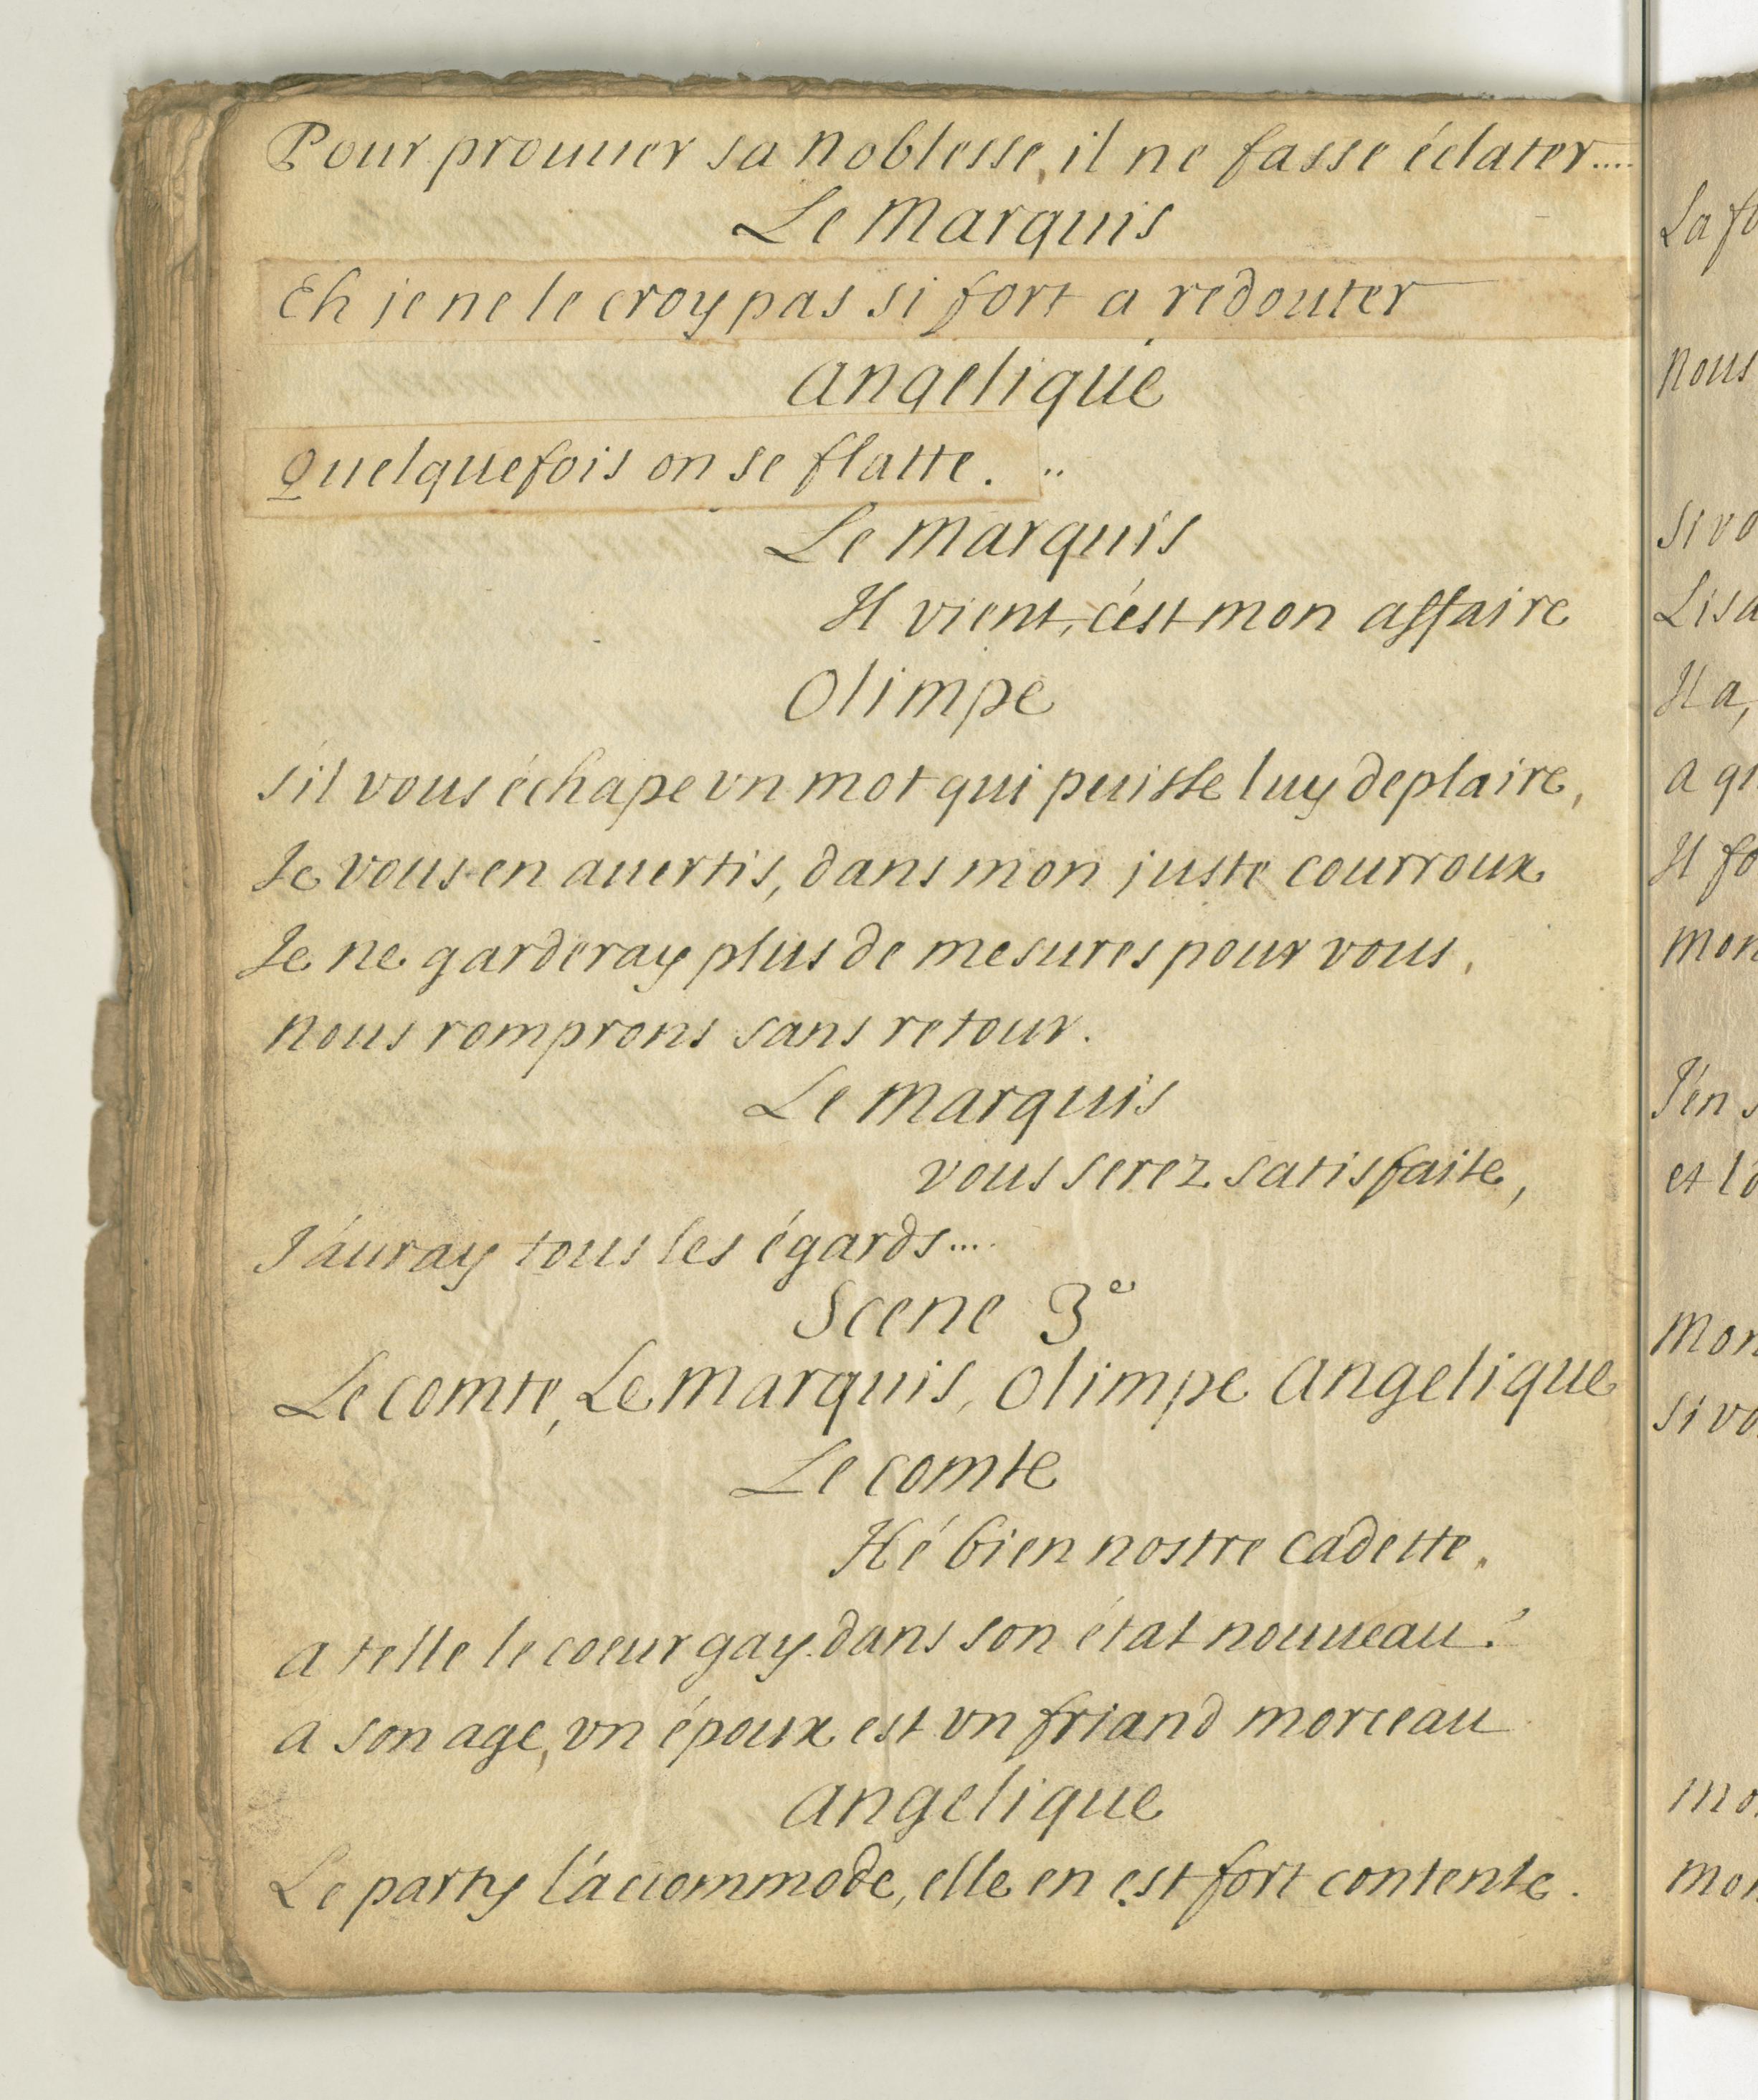 Pour prouuer sa noblesse, il ne fasse éclater....
Le marquis
Eh je ne le croy pas si fort a redouter
angelique
Quelquefois on se flatte. ..
Le marquis
Il vient, c'est mon affaire
Olimpe
s'il vous échape vn mot qui puisse luy deplaire,
Je vous en auertis, dans mon juste courroux
Je ne garderay plus de mesures pour vous,
nous romprons sans retour.
Le marquis
vous serez satisfaite,
J'auray tous les égards....
Scene 3e
Le comte, Le marquis, Olimpe angelique
Le comte
Hé bien nostre cadette,
a telle le coeur gay dans son état nouueau?
a son age, vn époux est vn friand morceau
angelique
Le party l'accommode, elle en est fort contente.
La fo
nous
si vo
Lisa
Il a,
a qu
Il fo
mon
J'en s
et l'o
mon
si vo
mo
mon